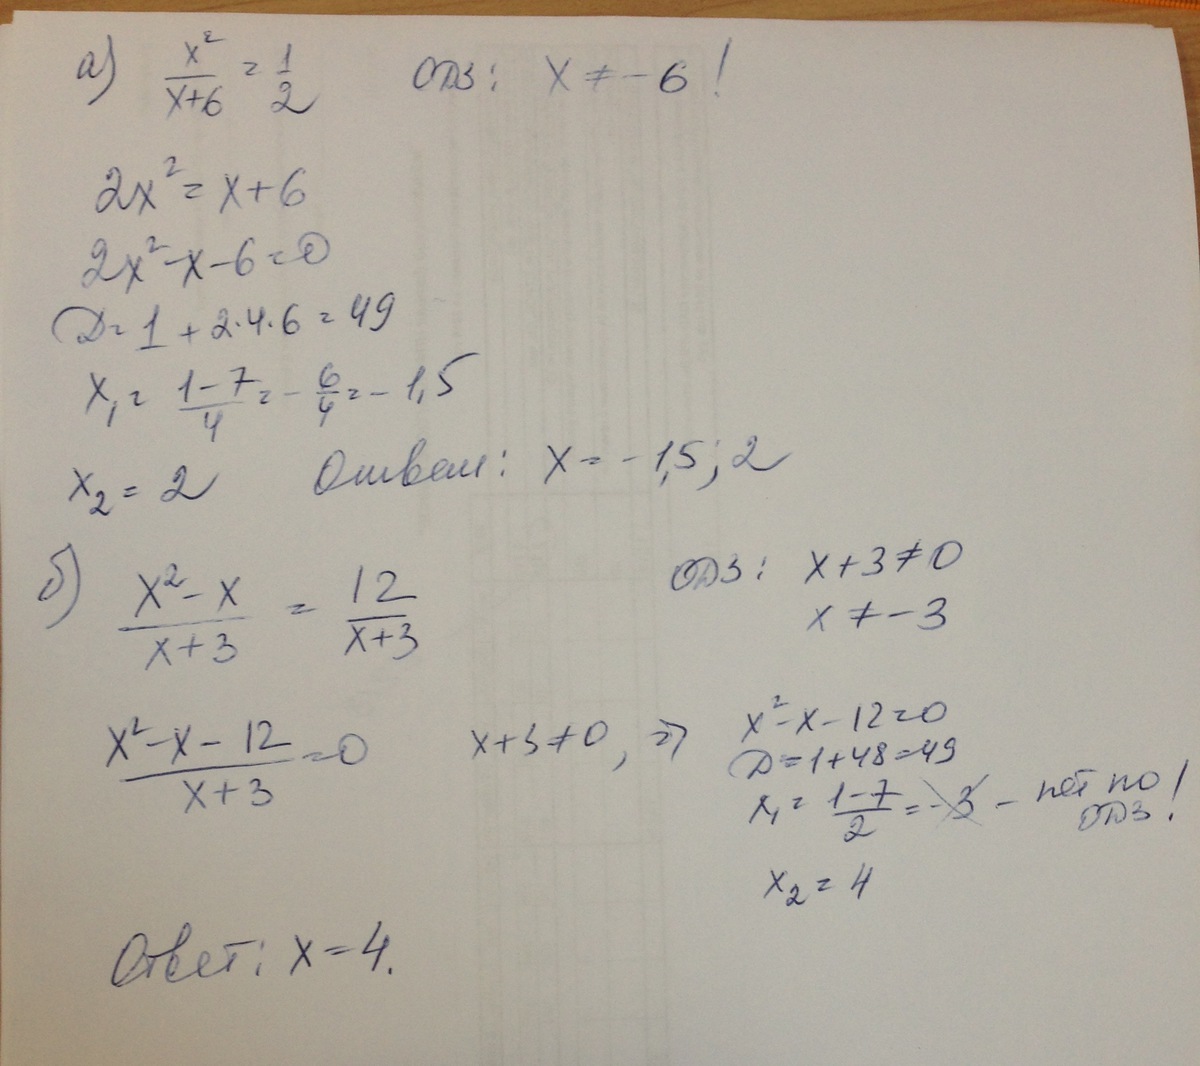 а) x²/(x+6) = 1/2 ОДЗ: x ≠ -6 !
2x² = x+6
2x² - x - 6 = 0
D = 1 + 2·4·6 = 49
x₁ = (1-7)/4 = -6/4 = -1,5
x₂ = 2 Ответ: x = -1,5; 2
б) (x² - x)/(x+3) = 12/(x+3) ОДЗ: x+3 ≠ 0
x ≠ -3
(x² - x - 12)/(x+3) = 0 x+3 ≠ 0, ⇒ x² - x - 12 = 0
D = 1 + 48 = 49
x₁ = (1-7)/2 = -3 - нет по ОДЗ!
x₂ = 4
Ответ: x = 4.